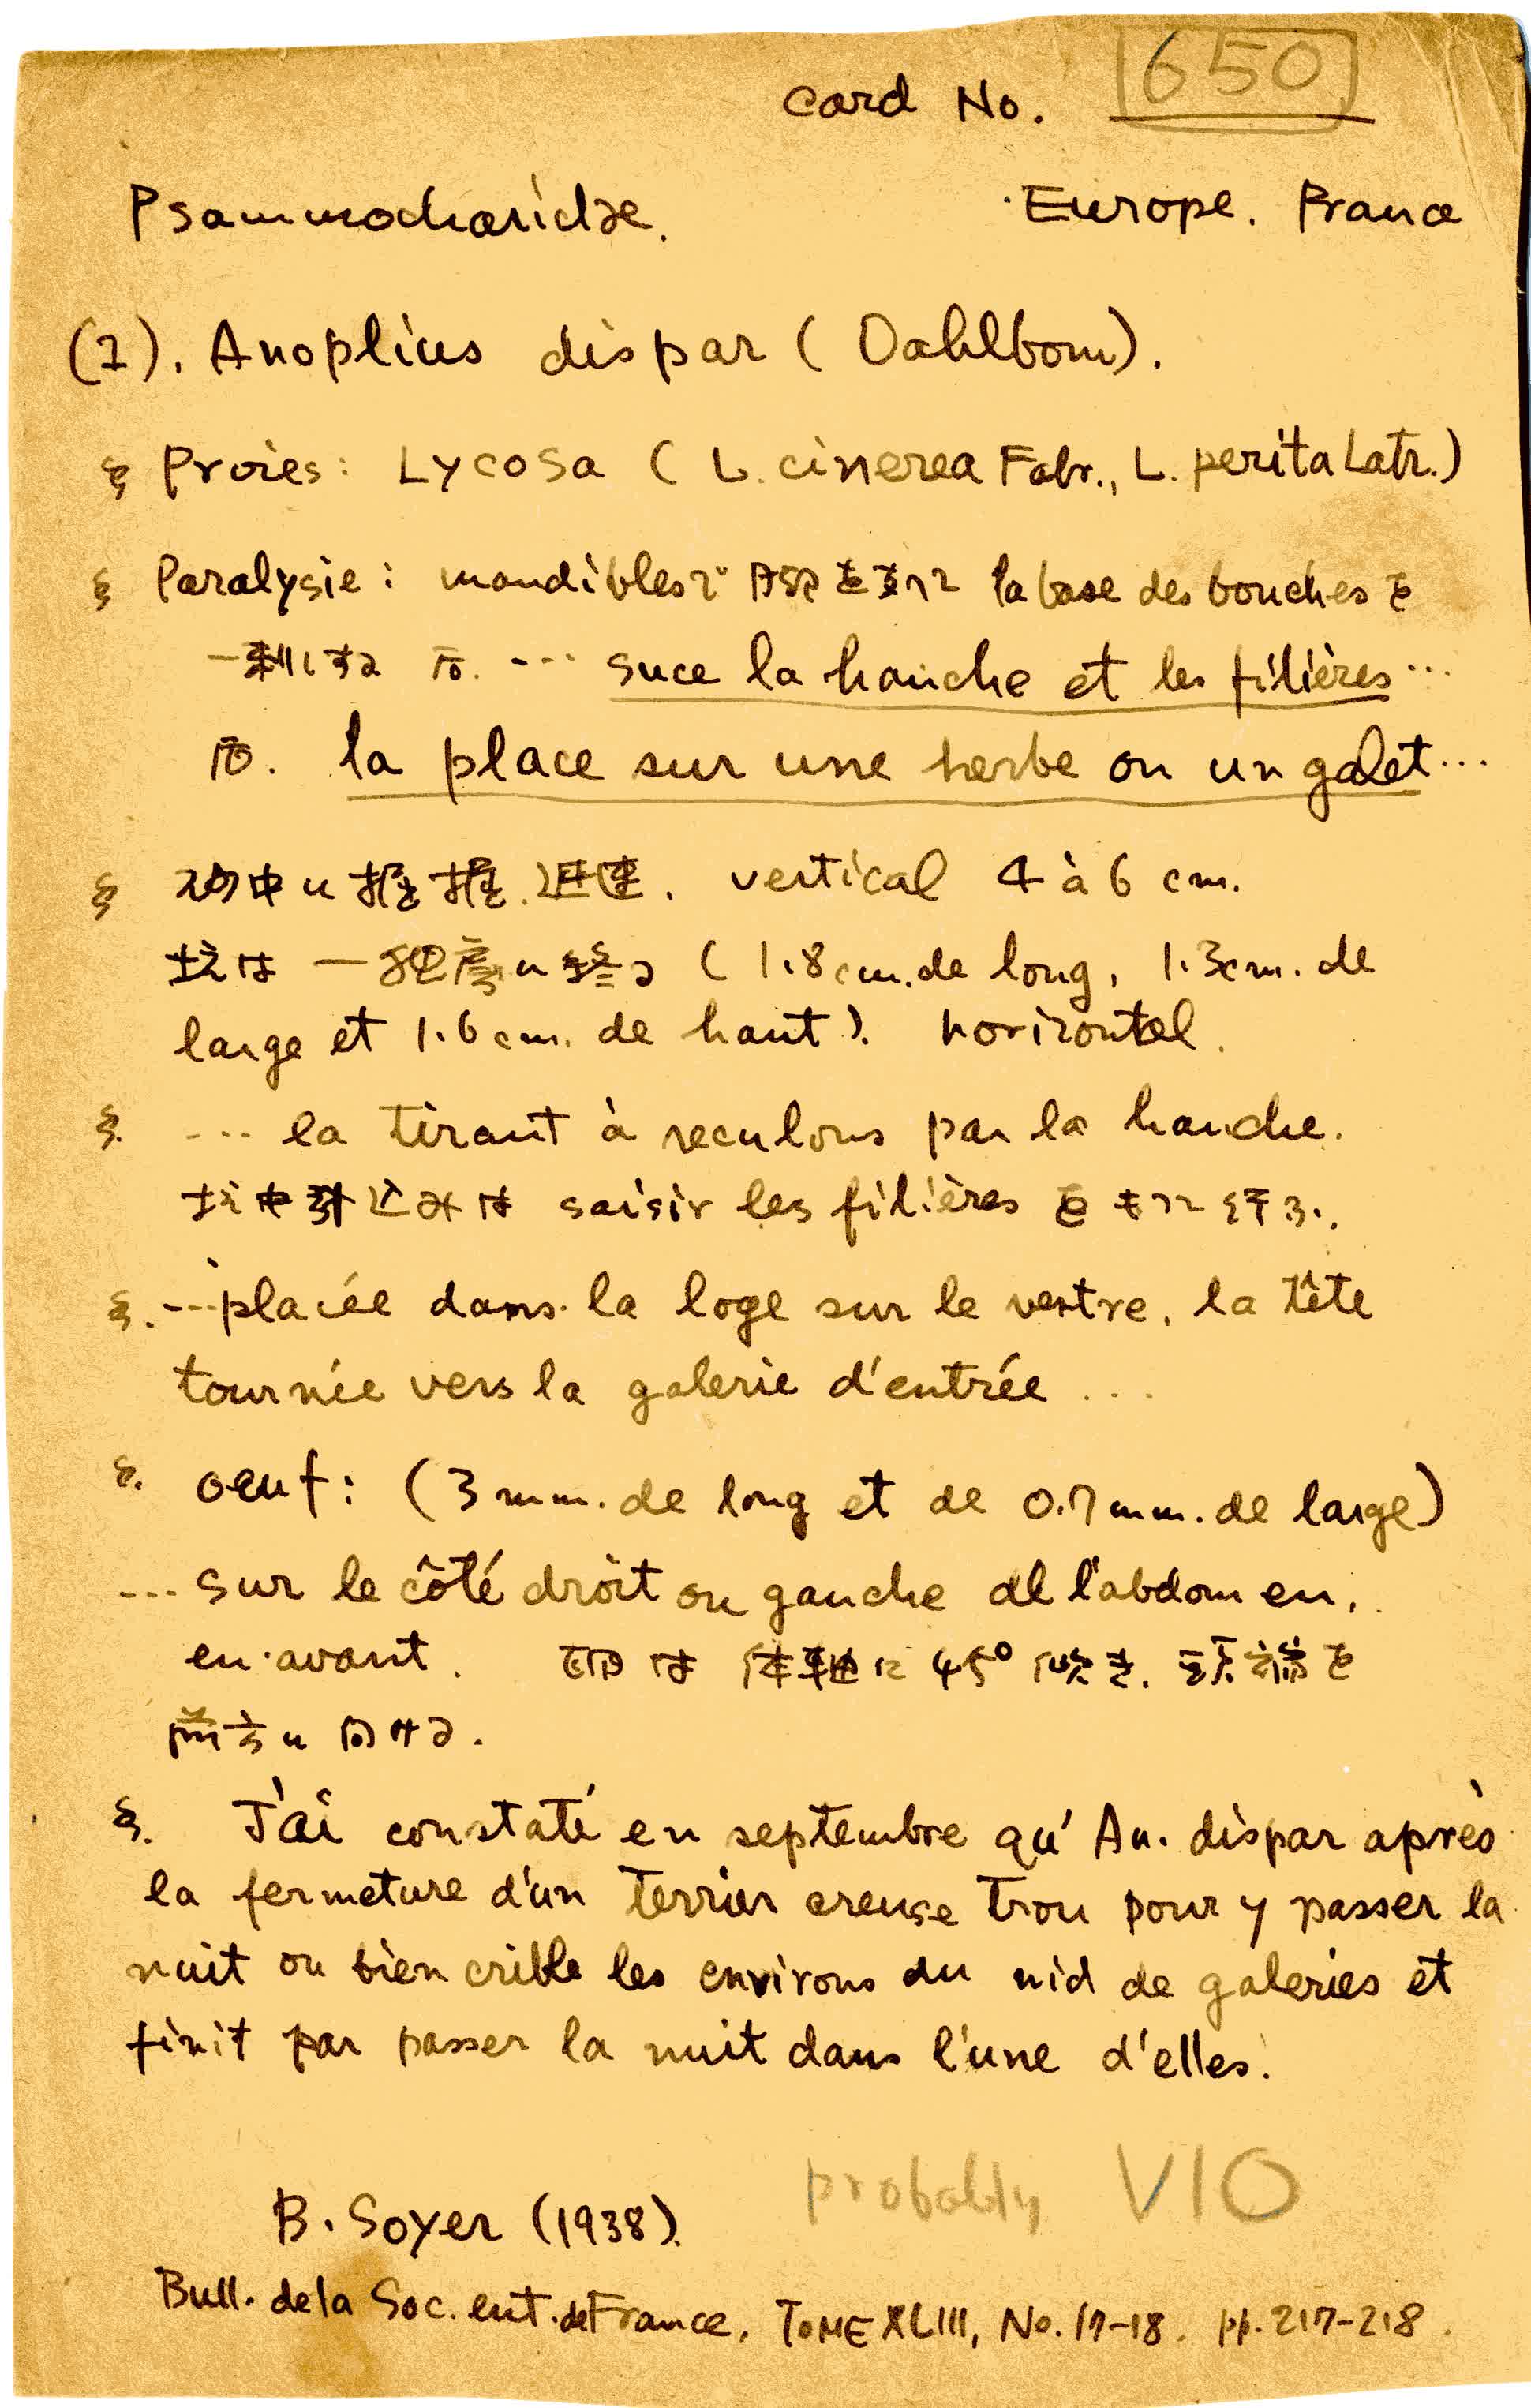 Card No. 650
Psammocharidae. Europe. France
(1). Anoplius dispar (Dahlbom).
§ Proies: Lycosa (L. cinerea Fabr., L. perita Latr.)
§ Paralysie: mandibles デ la base des bouches ヲ
一刺シスル 后. --- suce la hanche et les filières ...
后. la place sur une herbe ou un galet...
§ 砂中ニ vertical 4 à 6 cm.
坑ハ 一 ニ終ル (1.8 cm. de long, 1.3 cm. de
large et 1.6 cm. de haut). horizontal.
§. --- la tirant à reculons par la hanche.
坑中引込ミハ saisir les filières ヲ モツテ行フ.
§. ---placée dans la loge sur le ventre, la tête
tournée vers la galerie d'entrée ...
§. oeuf: (3 mm. de long et de 0.7 mm. de large)
--- sur le côté droit ou gauche de l'abdomen,
en avant. 卵ハ 体軸ニ 45° 傾キ, 頭端ヲ
ニ向ケル.
§. J'ai constaté en septembre qu' An. dispar après
la fermeture d'un terrier creuse trou pour y passer la
nuit ou bien crible les environs du nid de galeries et
finit par passer la nuit dans l'une d'elles.
probably V10
B. Soyer (1938).
Bull. de la Soc. ent. de France, TOME XLIII, No. 17-18. pp. 217-218.